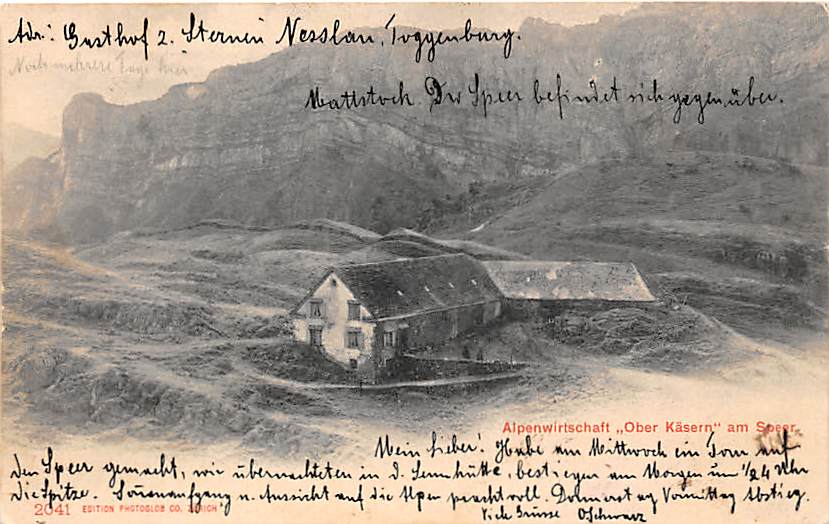 Adr.: Gasthof z. Sternen Nesslau, Toggenburg.
Noch mehrere Tage hier
Mattstock. Der Speer befindet sich gegenüber.
Alpenwirtschaft „Ober Käsern" am Speer
Mein Lieber! Habe am Mittwoch ein Tour auf
den Speer gemacht, wir übernachteten in d. Sennhütte, bestiegen am Morgen um ½4 Uhr
die Spitze. Sonnenaufgang u. Aussicht auf die Alpen prachtvoll. Donnerstag Vormittag Abstieg.
2041 EDITION PHOTOGLOB CO. ZÜRICH
Viele Grüsse OSchwarz